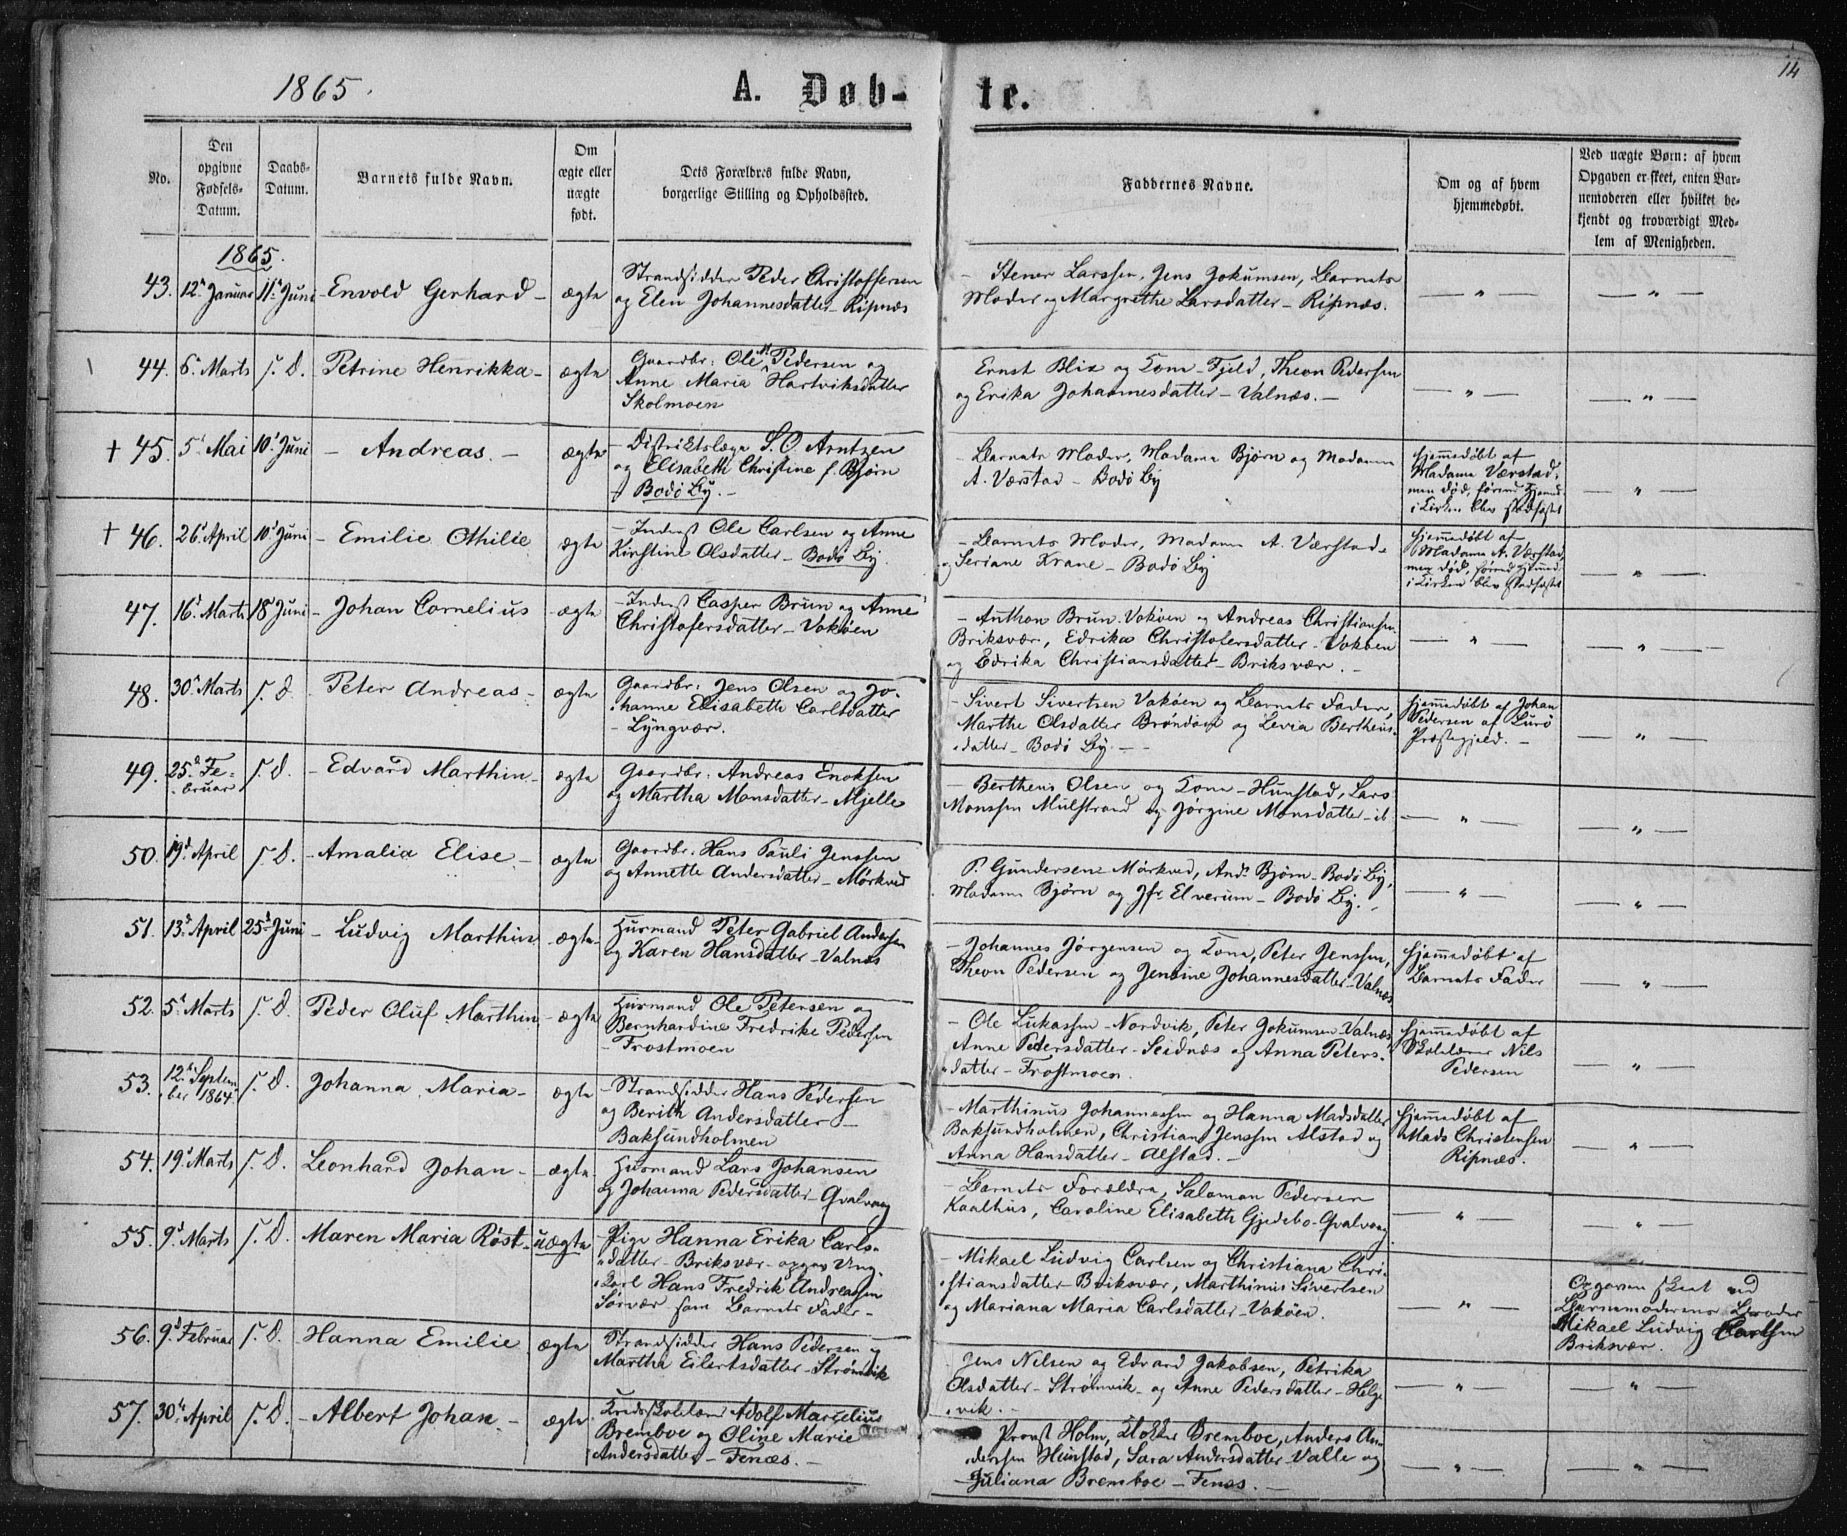 1865.
A. Døb-
te.
14
No.
Den
opgivne
Fødsels-
Datum.
Daabs-
Datum.
Barnets fulde Navn.
Om
ægte eller
uægte
født.
Dets Forældres fulde Navn,
borgerlige Stilling og Opholdssted.
Faddernes Navne.
Om og af hvem
hjemmedøbt.
Ved uægte Børn: af hvem
Opgaven er skeet, enten Bar-
nemoderen eller hvilket be-
kjendt og troværdigt Med-
lem af Menigheden.
1865.
43. 12te Januar 11te Juni Envold Gerhard - ægte
Strandsidder Peder Christoffersen
og Elen Johannesdatter - Ripnæs
- Stener Larssen, Jens Jokumsen, Barnets
Moder og Margrethe Larsdatter - Ripnæs.
— " —
— " —
44. 6te Marts s. D. Petrine Henrikka - ægte
Gaardbr: Ole Pedersen og
Anne Maria Hartviksdatter
Skolmoen
Ernst Blix og Kone - Fjeld, Theon Pedersen
og Erika Johannesdatter - Valnæs. -
— " —
— " —
+ 45. 5te Mai 10de Juni - Andreas. - ægte
- Distriktslæge S. O. Arntzen
og Elisabeth Christine f. Bjørn
Bodø By. -
- Barnets Moder, Madame Bjørn og Madame
A. Værstad - Bodø By
Hjemmedøbt af
Madame Værstad,
men død, førend Hjemmed.
i Kirken blev stadfæstet
— " —
+ 46. 26de April 10de Juni - Emilie Othilie ægte
- Inderst Ole Carlsen og Anne
Kirstine Olsdatter - Bodø By.
- Barnets Moder, Madame A. Værstad
og Seriane Krane - Bodø By
Hjemmedøbt af
Madame A. Værstad
men død, førend Hjemmed.
i Kirken blev stadfæstet
— " —
47. 16de Marts 18de Juni - Johan Cornelius - ægte
- Inderst Casper Brun og Anne
Christofersdatter - Vokøen
- Anthon Brun Vokøen og Andreas Christiansen
Briksvær, Edrika Christofersdatter - Vokøen
og Edrika Christiansdatter - Briksvær. -
— " —
— " —
48. 30te Marts s. D. Peter Andreas - ægte
Gaardbr: Jens Olsen og Jo-
hanne Elisabeth Carlsdatter
- Lyngvær.
- Sivert Sivertsen Vakøen og Barnets Fader,
Marthe Olsdatter Brøndøen og Levia Berthens-
datter - Bodø By. -
Hjemmedøbt af Johan
Pedersen af Lurø
Præstegjeld. -
— " —
49. 25de Fe-
bruar s. D. - Edvard Marthin - ægte
Gaardbr: Andreas Enoksen
og Martha Monsdatter - Mjelle
- Berthens Olsen og Kone - Hunstad, Lars
Monssen Mulstrand og Jørgine Monsdatter - ib
— " —
— " —
50. 19de April s. D. - Amalia Elise - ægte
Gaardbr: Hans Pauli Jenssen
og Annette Andersdatter - Mørkved
P. Gundersen Mørkved, Ands. Bjørn - Bodø By,
Madame Bjørn og Jfr Elverum - Bodø By. -
— " —
— " —
51. 13de April 25de Juni - Ludvig Marthin ægte
Husmand Peter Gabriel Andersen
og Karen Hansdatter - Valnæs
- Johannes Jørgensen og Kone, Peter Jenssen,
Theon Pedersen og Jensine Johannesdatter - Valnæs
Hjemmedøbt af
Barnets Fader
— " —
52. 5te Marts s. D. Peder Oluf Marthin - ægte
Husmand Ole Petersen og
Bernhardine Fredrike Pedersen
- Frostmoen
- Ole Lukassen - Nordvik, Peter Jokumsen - Valnæs,
Anne Pedersdatter - Seidnæs og Anna Peters-
datter - Frostmoen.
Hjemmedøbt af
Skolelærer Nils
Pedersen
— " —
53. 12te Septem-
ber 1864 s. D. Johanna Maria - ægte
- Strandsidder Hans Pedersen
og Berith Andersdatter -
Baksundholmen
- Marthinus Johannessen og Hanna Madsdatter
Baksundholmen, Christian Jenssen Alstad og
Anna Hansdatter - Alstad. -
Hjemmedøbt af
Mads Christensen
Ripnæs.
— " —
54. 19de Marts s. D. Leonhard Johan - ægte
Husmand Lars Johansen
og Johanna Pedersdatter - Qvalvaag
- Barnets Forældre, Salamon Pedersen
Kaalhus, Caroline Elisabeth Gjedebo - Qvalvaag
— " —
— " —
55. 9de Marts s. D. Maren Maria Røst - uægte
Pige Hanna Erika Carls-
datter - Briksvær - opgav Ung-
karl Hans Fredrik Andreassen
Sørvær som Barnets Fader -
- Mikael Ludvig Carlsen og Christiana Chri-
stiansdatter - Briksvær, Marthinus Sivertsen
og Mariana Maria Carlsdatter - Vokøen.
— " —
Opgaven skeet ved
Barnemoderens Broder
Mikael Ludvig Carlsen
Briksvær.
56. 9de Februar s. D. - Hanna Emilie ægte
Strandsidder Hans Pedersen og
Martha Eilertsdatter - Strømvik
Jens Nilsen og Edvard Jakobsen, Petrika
Olsdatter - Strømvik - og Anne Pedersdatter - Helge-
vik. -
— " —
— " —
57. 30te April s. D. - Albert Johan - ægte
Kredsskolelærer Adolf Marselius
Bremboe og Oline Marie
Andersdatter - Fenæs. -
Provst Holm, Klokker Bremboe, Anders An-
dersen Hunstad, Sara Andersdatter Valle og
- Juliana Bremboe - Fenæs. -
— " —
— " —